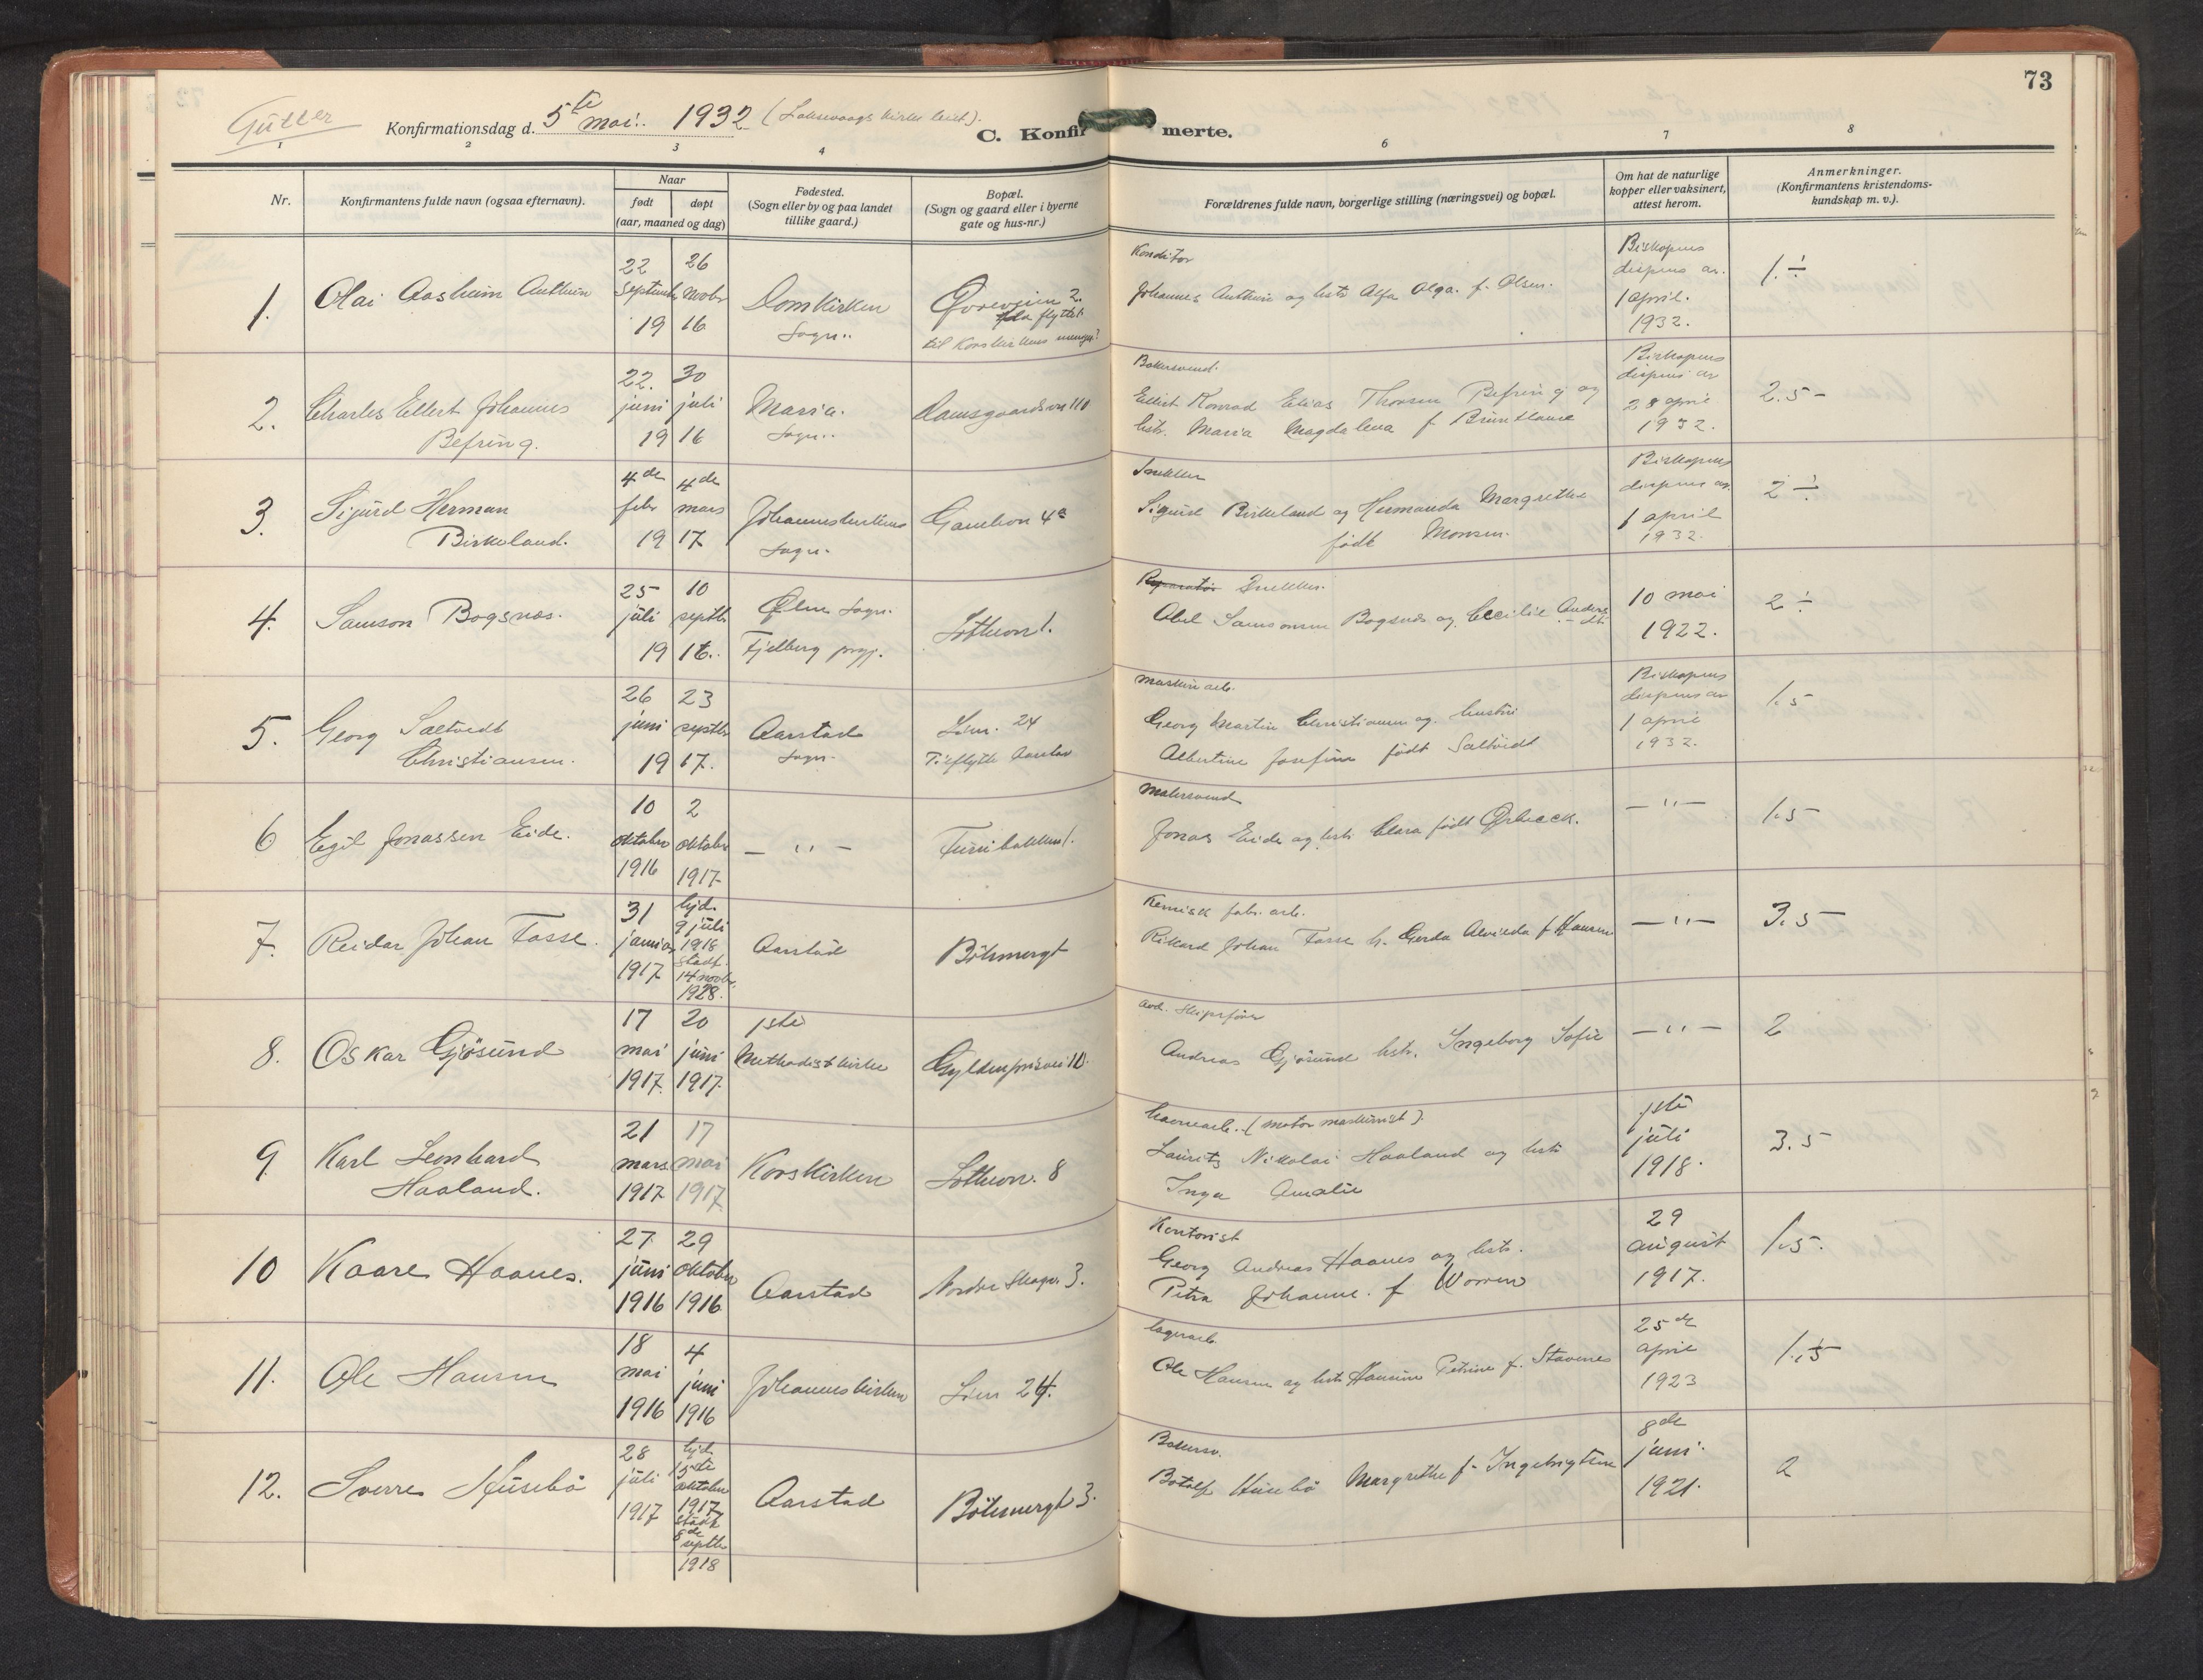 73
Gutter
Konfirmationsdag d. 5te mai. 1932 (Laksevaags kirke leiet).
C. Konfir merte.
1 2 3 4 6 7 8
Nr.
Konfirmantens fulde navn (ogsaa efternavn).
Naar
født døpt
(aar, maaned og dag)
Fødested.
(Sogn eller by og paa landet
tillike gaard.)
Bopæl.
(Sogn og gaard eller i byerne
gate og hus-nr.)
Forældrenes fulde navn, borgerlige stilling (næringsvei) og bopæl.
Om hat de naturlige
kopper eller vaksinert,
attest herom.
Anmerkninger.
(Konfirmantens kristendoms-
kundskap m. v.).
1.
Olai Aasheim Anthun
22 septemb
26 novbr
19 16
Domkirken
Sogn..
2.
flyttet
til Korskirkens
Konditor
Johannes Anthun og hstr Alfa Olga. f. Olsen.
Biskopens
dispens av.
1 april.
1932.
1. ÷
2.
Charles Ellert Johannes
Befring.
22. juni
30 juli
19 16
Maria.
Sogn..
Damsgaardsvn 110
Bakersvend.
Ellert Konrad Elias Thorsen Befring og
hstr. Maria Magdalena f
Biskopens
dispens av
28 april
1932.
2.5 -
3.
Sigurd Herman
Birkeland.
4de febr
4de mars
19 17
Johanneskirkens
Sogn.
4a
Snekker
Sigurd Birkeland og Hermanda Margrethe
født Monsen.
Biskopens
dispens av.
1 april
1932.
2 ÷
4.
Samson Bogsnæs.
25 juli
10 septbr
19 16.
Ølen Sogn.
Fjelberg prgj.
1.
Reparatør Snekker.
Abel Samsonsen Bogsnæs og Cecilie
10 mai
1922.
2 ÷
5.
Georg Saltvedt
Christiansen.
26 juni
23 septbr
19 17.
Aarstad
Sogn.
Lien. 24
maskinarb.
Georg Martin Christiansen og hustru
Albertine Josefine født Saltvedt
Biskopens
dispens av
1 april
1932.
1.5
6
Egil Jonassen Eide.
10 oktober 1916
2 oktober 1917
— " —
1.
Malersvend
Jonas Eide og hstr. Clara født Ørbeeck.
— " —
1.5
7.
Reidar Johan Fasse.
31 januar 1917
hjd.
9 juli
1918
stadf.
14 novbr.
1928.
Aarstad
Böhmergt
Kemisk fabr. arb.
Rikard Johan Fasse h. Gerda Alvilda f Hansen
— " —
3.5
8.
Oskar Gjøsund
17 mai 1917
20 juni 1917
1ste
Methodistkirke
Gyldenprisvei 10.
Andreas Gjøsund hstr. Ingeborg Sofie
— " —
2
9
Karl Leonhard
Haaland.
21 mars 1917
17 mai 1917
Korskirken
8
havnearb. (motor maskinist).
Laurits Nikolai Haaland og hstr
Inga Amalie
1ste
juli
1918.
3.5
10
Kaare Haanes.
27 juni 1916
29 oktober 1916
Aarstad
Nordre Skogv. 3.
Kontorist
Georg Andreas Haanes og hstr.
Petra Johanne. f
29
august
1917.
1.5.
11.
Ole Hansen
18 mai 1916
4 juni 1916
Johanneskirken
Lien 24.
lagerarb
Ole Hansen og hstr Hansine Petrine f. Stavenes
25de
april
1923
1.5
12.
Sverre Husebø
28 juli 1917
hjd.
15de
oktober
1917
stadf
8de
septbr
1918
Aarstad
Böhmergt 3.
Bakersv.
Botolf Husebø Margrethe f. Ingebrigtsen
8de
juni.
1921.
2